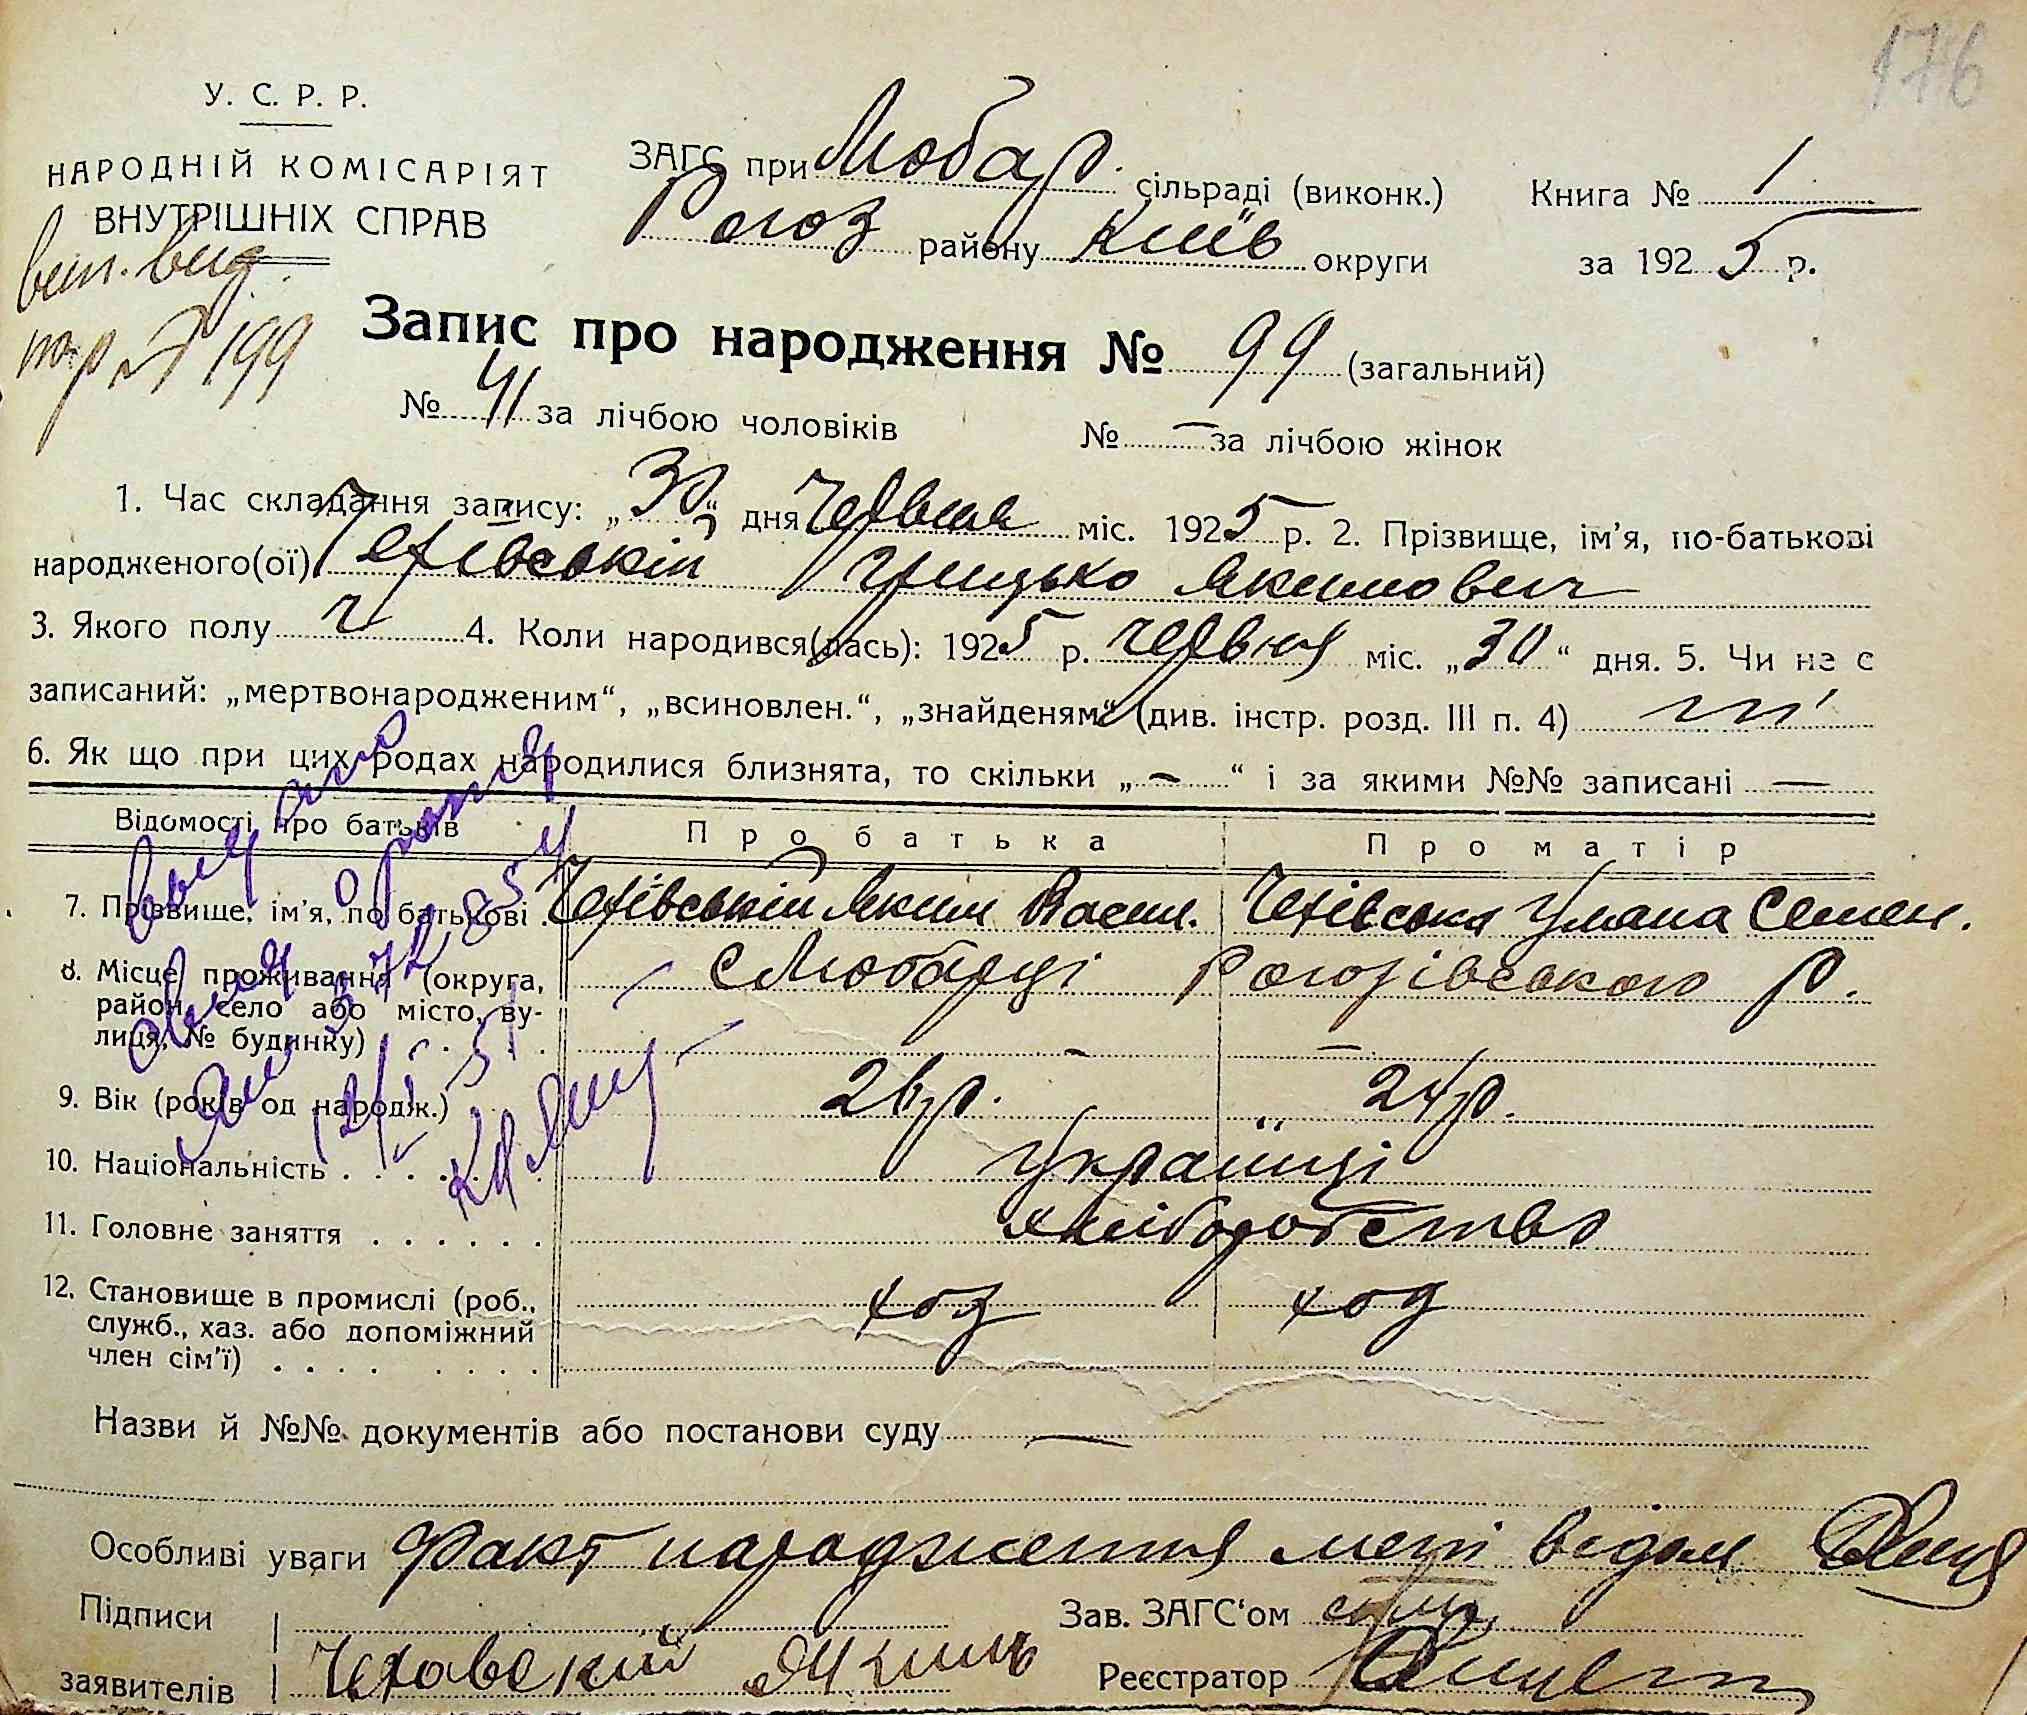 176
У. С. Р. Р.
НАРОДНІЙ КОМІСАРІЯТ
ВНУТРІШНІХ СПРАВ
вип. вид.
ЗАГС при Любар. сільраді (виконк.)
Рогоз району Київ округи
Книга № 1
за 1925 р.
№ 199
Запис про народження № 99 (загальний)
№ 41 за лічбою чоловіків № — за лічбою жінок
1. Час складання запису: „30“ дня Червня міс. 1925 р. 2. Прізвище, ім’я, по-батькові
народженого(ої) Чехівській Грицько Якимович
3. Якого полу ч 4. Коли народився(лась): 1925 р. червня міс. „30“ дня. 5. Чи не є
записаний: „мертвонародженим“, „всиновлен.“, „знайденям“ (див. інстр. розд. III п. 4) ні
6. Як що при цих родах народилися близнята, то скільки „—“ і за якими №№ записані —
Відомості про батьків Про батька Про матір
7. Прізвище, ім’я, по батькові . Чехівській Яким Васил. Чехівська Уляна Семен.
8. Місце проживання (округа, район, село або місто, вулиця, № будинку) с Любарці Рогозівського р.
9. Вік (років од народж.) 26 р. 24 р.
10. Національність . . . . . . Українці
11. Головне заняття . . . . . . хліборобство
12. Становище в промислі (роб., служб., хаз. або допоміжний член сім’ї) . . . . . . . . хоз хоз
Назви й №№ документів або постанови суду —
Особливі уваги Факт народження мені відом
Підписи
Зав. ЗАГС‘ом
заявителів Чеховский Яким
Реєстратор